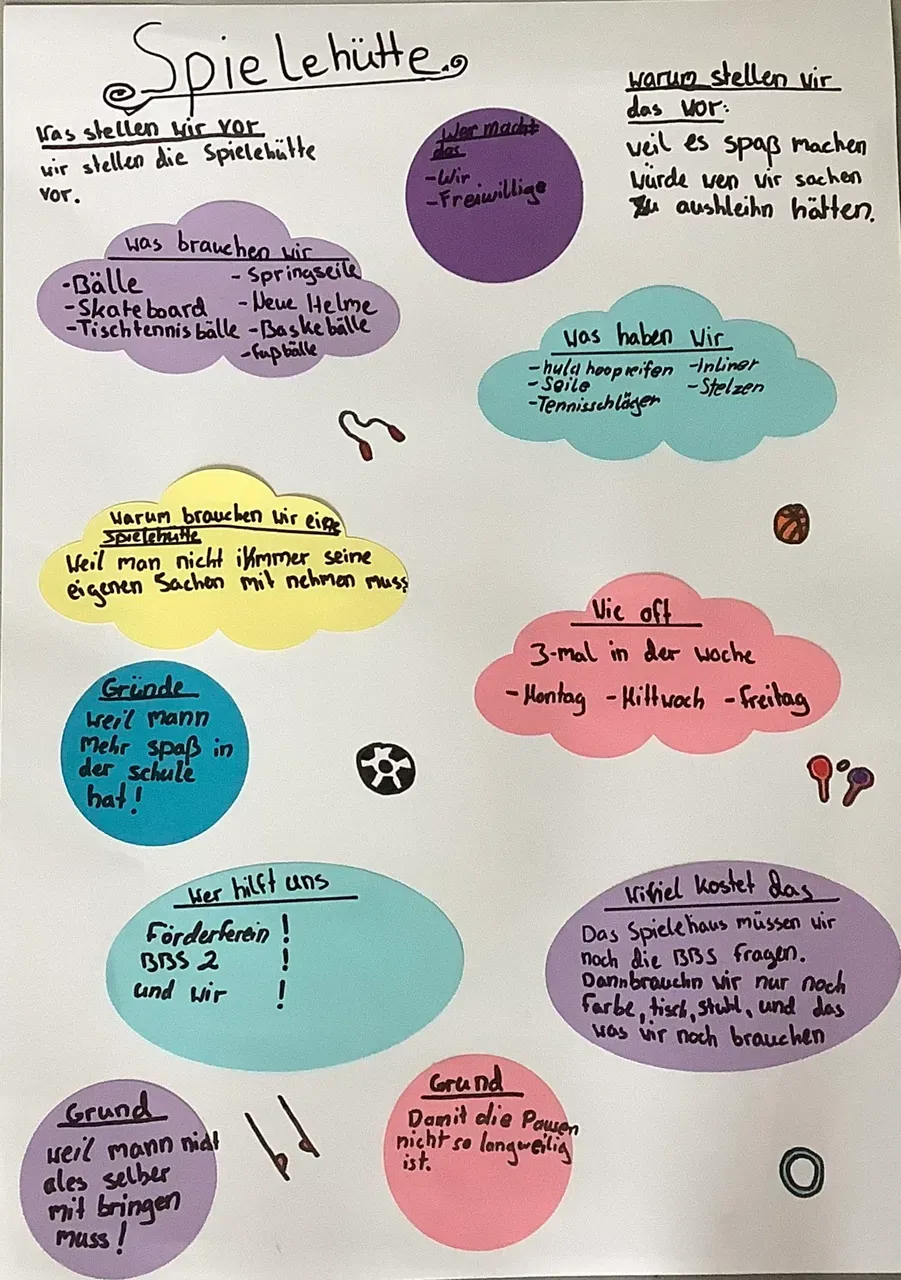 Spielehütte
Was stellen wir vor
wir stellen die Spielehütte
vor.
Wer macht
das
-Wir
-Freiwillige
warum stellen wir
das vor:
weil es spaß machen
würde wen wir sachen
zu aushleihn hätten.
was brauchen wir
-Bälle
-Skateboard
-Tischtennisbälle
-Springseile
-Neue Helme
-Baskebälle
-Fußbälle
was haben Wir
-hula hoopreifen
-Seile
-Tennisschläger
-Inliner
-Stelzen
Warum brauchen wir eine
Spielehütte
Weil man nicht immer seine
eigenen Sachen mit nehmen muss
Wie oft
3-mal in der woche
-Montag -Mittwoch -Freitag
Gründe
weil mann
Mehr spaß in
der schule
hat!
Wer hilft uns
Förderferein !
BBS 2 !
und wir !
Wifiel kostet das
Das Spielehaus müssen wir
noch die BBS fragen.
Dannbrauchn wir nur noch
farbe, tisch, stuhl, und das
was wir noch brauchen
Grund
weil mann nicht
ales selber
mit bringen
muss!
Grund
Damit die Pausen
nicht so langweilig
ist.